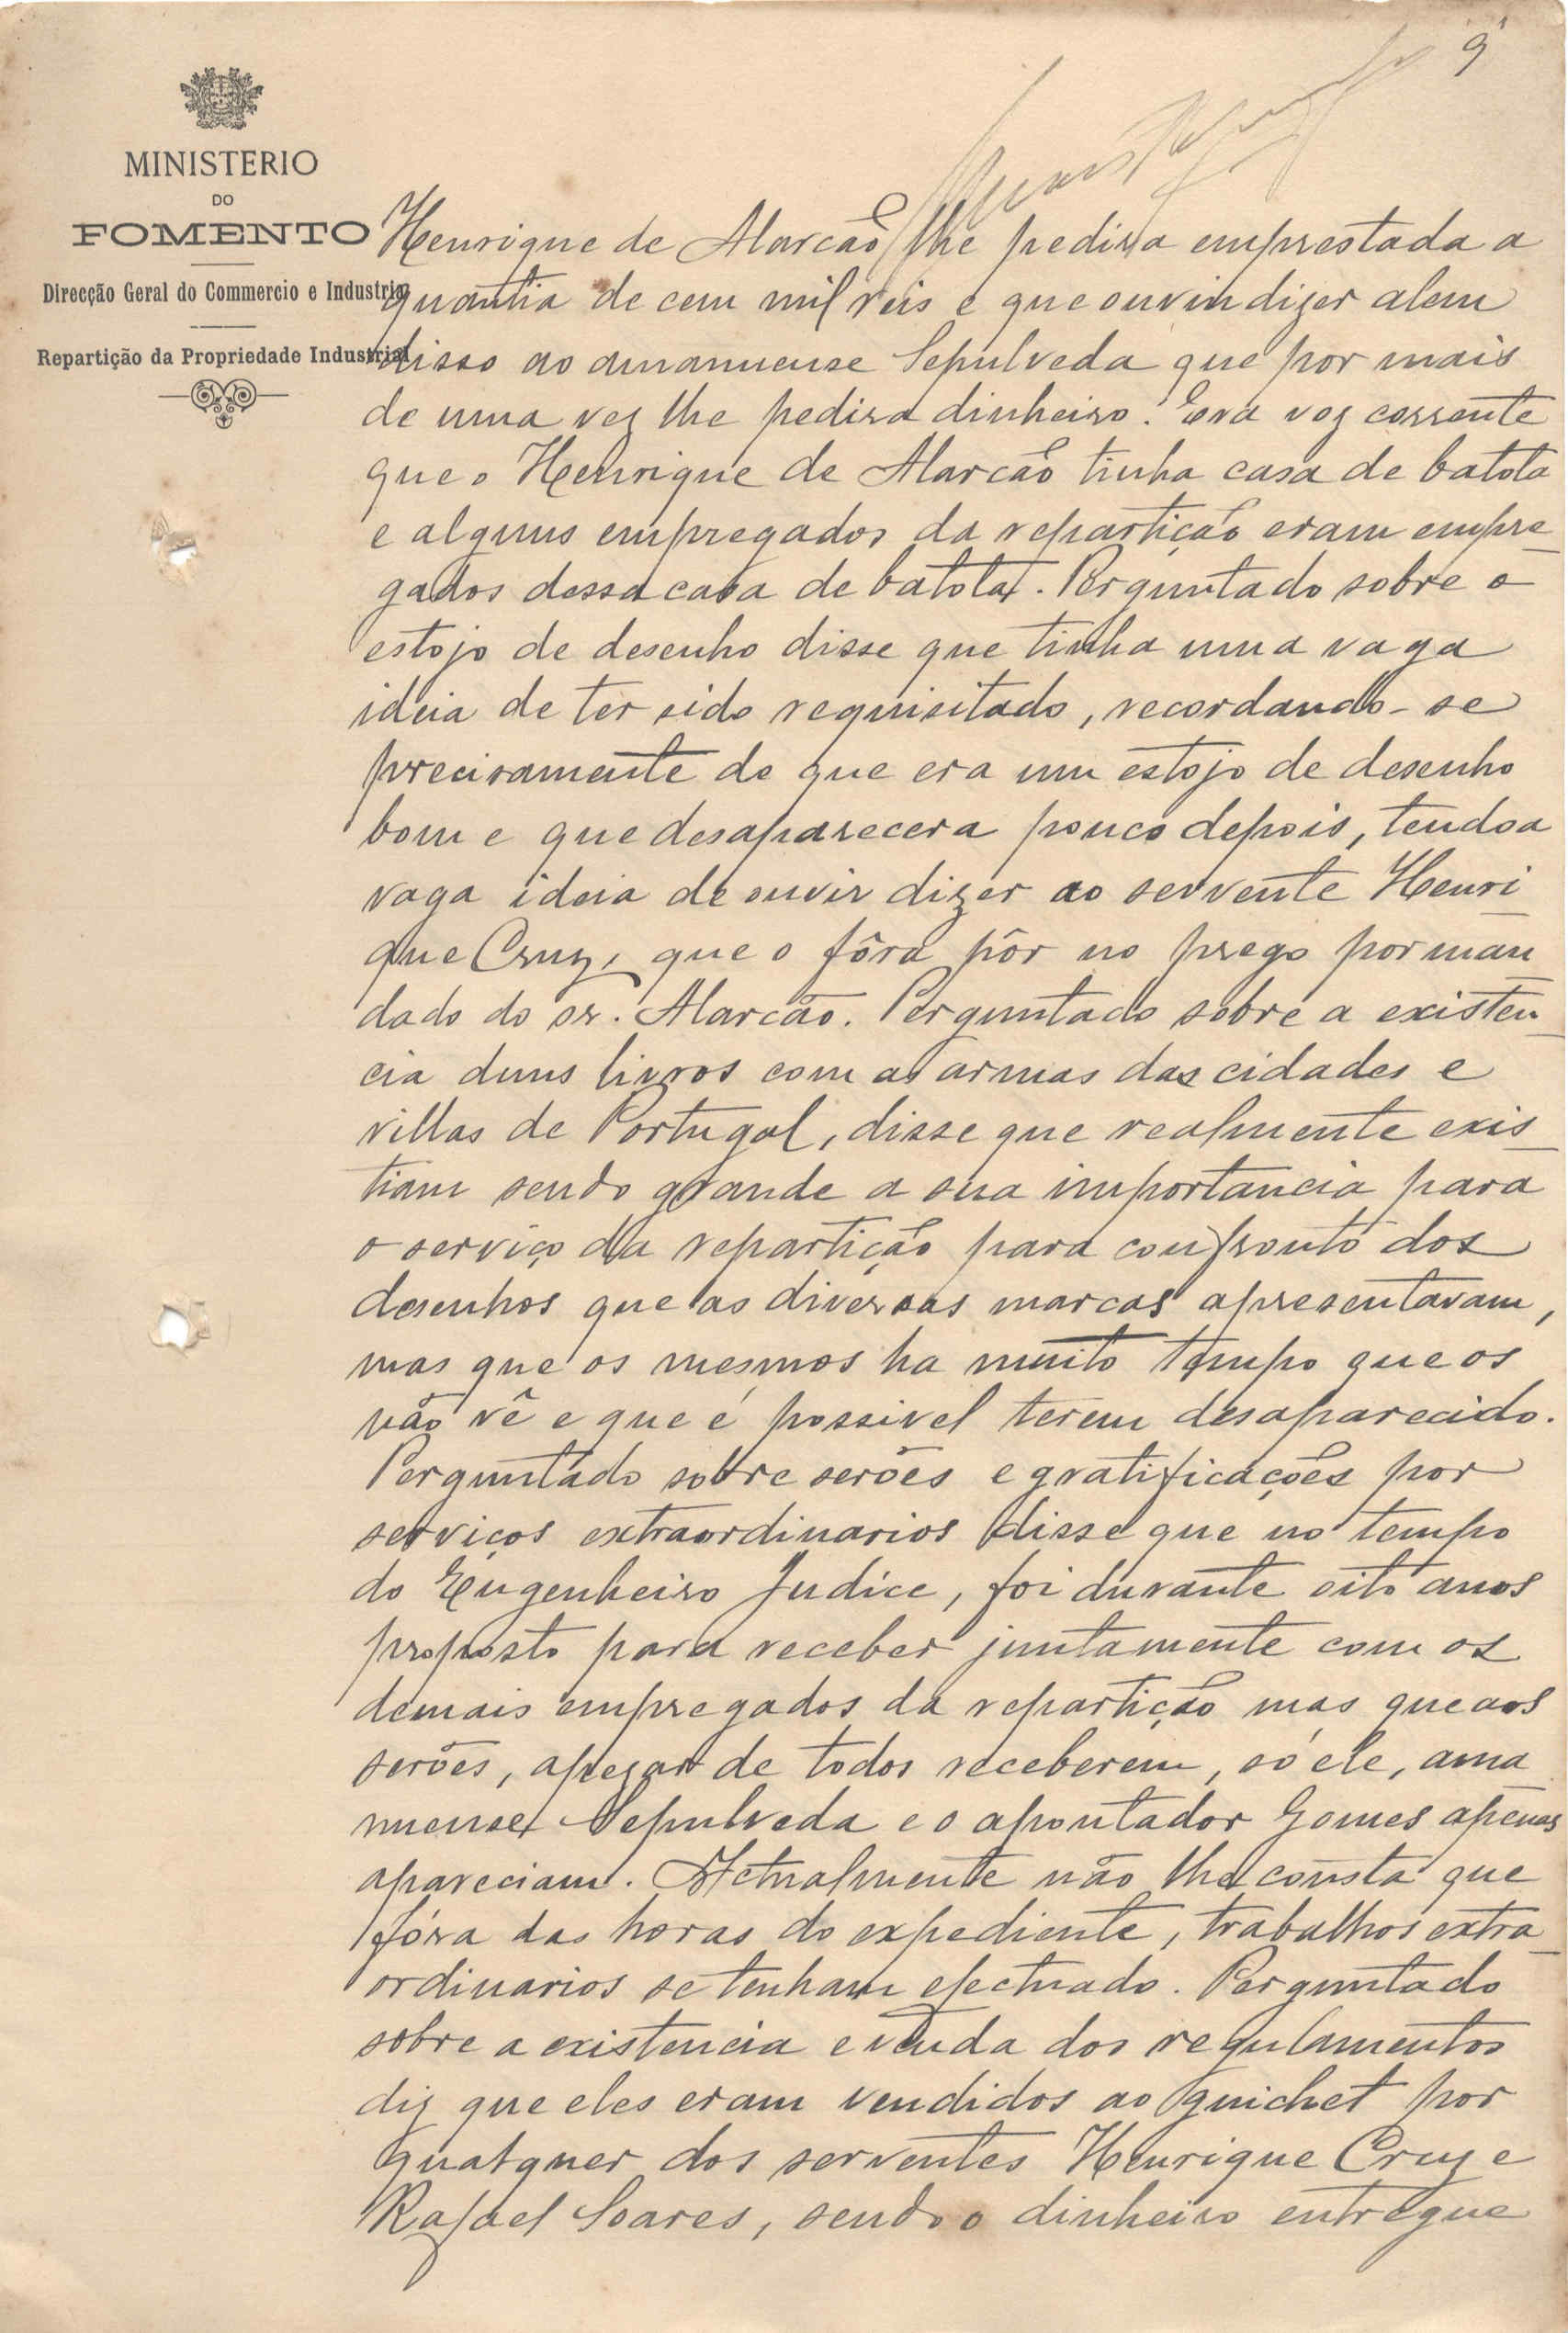 9
MINISTERIO
DO
FOMENTO
Direcção Geral do Commercio e Industria
Repartição da Propriedade Industrial
Henrique de Alarcão lhe pedira emprestada a
quantia de cem mil reis e que ouviu dizer alem
disso ao amanuense Sepulveda que por mais
de uma vez lhe pedira dinheiro. Era voz corrente
que o Henrique de Alarcão tinha casa de batota
e alguns empregados da repartição eram empre-
gados dessa casa de batota. Perguntado sobre o
estojo de desenho disse que tinha uma vaga
ideia de ter sido requisitado, recordando-se
precisamente de que era um estojo de desenho
bom e que desaparecera pouco depois, tendo a
vaga ideia de ouvir dizer ao servente Henri-
que Cruz, que o fôra pôr no prego por man-
dado do sr. Alarcão. Perguntado sobre a existen-
cia duns livros com as armas das cidades e
villas de Portugal, disse que realmente exis-
tiam sendo grande a sua importancia para
o serviço da repartição para confronto dos
desenhos que as diversas marcas apresentavam,
mas que os mesmos ha muito tempo que os
não vê e que é possivel terem desaparecido.
Perguntado sobre serões e gratificações por
serviços extraordinarios disse que no tempo
do Engenheiro Judice, foi durante oito anos
proposto para receber juntamente com os
demais empregados da repartição mas que aos
serões, apezar de todos receberem, só ele, ama-
nuense Sepulveda e o apontador Gomes apenas
apareciam. Actualmente não lhe consta que
fóra das horas do expediente, trabalhos extra-
ordinarios se tenham efectuado. Perguntado
sobre a existencia e venda dos regulamentos
diz que eles eram vendidos ao guichet por
qualquer dos serventes Henrique Cruz e
Rafael Soares, sendo o dinheiro entregue